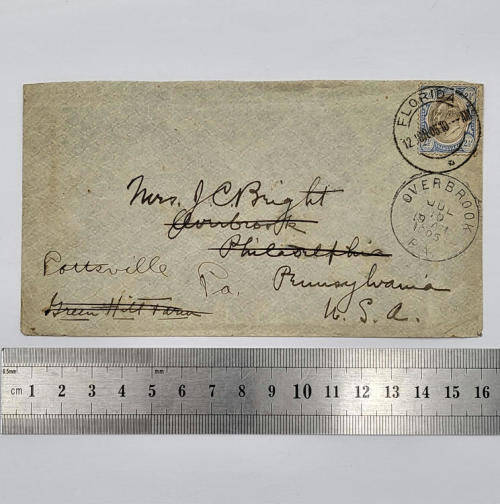 FLORIDA
12 JUN 05 10 - AM
OVERBROOK
JUL
10
1905
PA.
Mrs. J C Bright
Overbrook
Philadelphia
Pottsville
Pa.
Pennsylvania
Green Hill Farm
U. S. A.
0.5mm
mm
cm 1 2 3 4 5 6 7 8 9 10 11 12 13 14 15 16